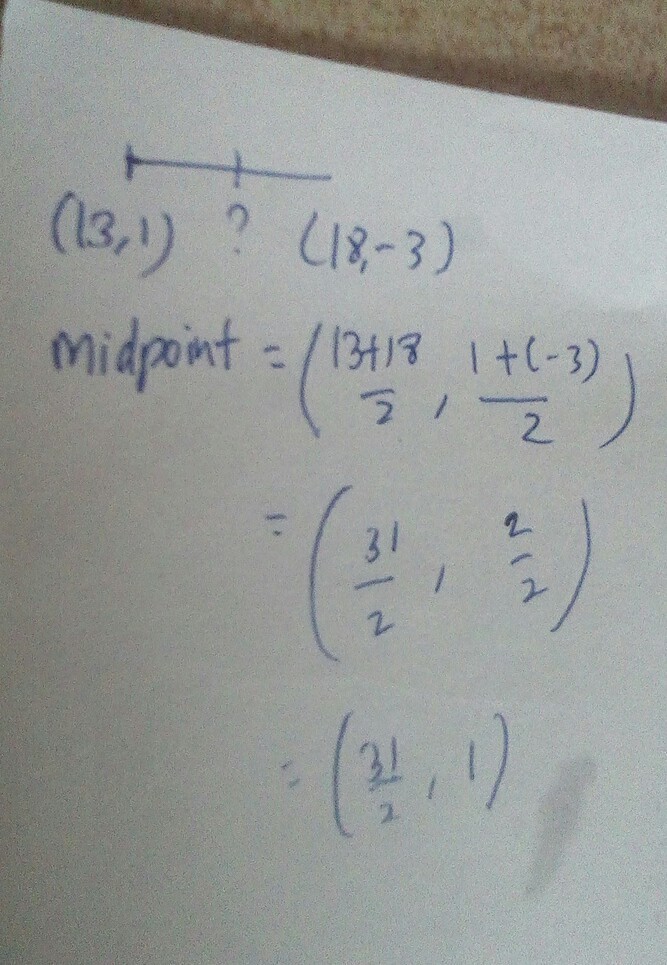 (13,1) ? (18,-3)
midpoint = (13+18/2, 1+(-3)/2)
= (31/2, 2/2)
= (31/2, 1)